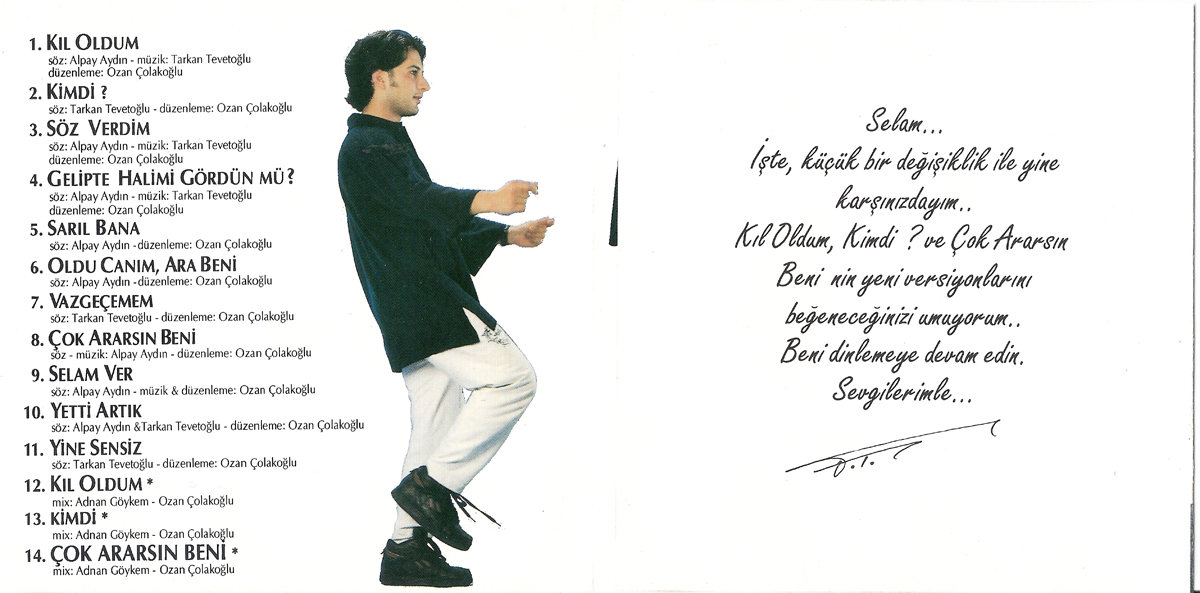 1. KIL OLDUM
söz: Alpay Aydın - müzik: Tarkan Tevetoğlu
düzenleme: Ozan Çolakoğlu
2. KİMDİ ?
söz: Tarkan Tevetoğlu - düzenleme: Ozan Çolakoğlu
3. SÖZ VERDİM
söz: Alpay Aydın - müzik: Tarkan Tevetoğlu
düzenleme: Ozan Çolakoğlu
4. GELİPTE HALİMİ GÖRDÜN MÜ?
söz: Alpay Aydın - müzik: Tarkan Tevetoğlu
düzenleme: Ozan Çolakoğlu
5. SARIL BANA
söz: Alpay Aydın -düzenleme: Ozan Çolakoğlu
6. OLDU CANIM, ARA BENİ
söz: Alpay Aydın -düzenleme: Ozan Çolakoğlu
7. VAZGEÇEMEM
söz: Tarkan Tevetoğlu - düzenleme: Ozan Çolakoğlu
8. ÇOK ARARSIN BENİ
söz - müzik: Alpay Aydın - düzenleme: Ozan Çolakoğlu
9. SELAM VER
söz: Alpay Aydın - müzik & düzenleme: Ozan Çolakoğlu
10. YETTİ ARTIK
söz: Alpay Aydın &Tarkan Tevetoğlu - düzenleme: Ozan Çolakoğlu
11. YİNE SENSİZ
söz: Tarkan Tevetoğlu - düzenleme: Ozan Çolakoğlu
12. KIL OLDUM *
mix: Adnan Göykem - Ozan Çolakoğlu
13. KİMDİ *
mix: Adnan Göykem - Ozan Çolakoğlu
14. ÇOK ARARSIN BENİ *
mix: Adnan Göykem - Ozan Çolakoğlu
Selam...
İşte, küçük bir değişiklik ile yine
karşınızdayım..
Kıl Oldum, Kimdi ? ve Çok Ararsın
Beni nin yeni versiyonlarını
beğeneceğinizi umuyorum..
Beni dinlemeye devam edin.
Sevgilerimle...